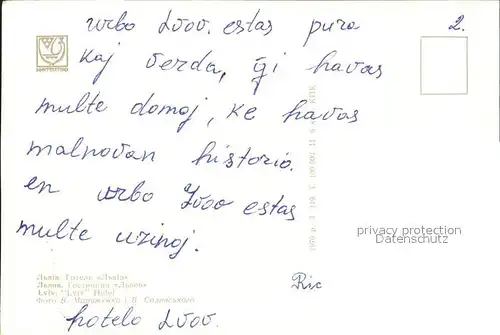 urbo Lvov. estas pura
2.
Kaj verda, ĝi havas
multe domoj, ke havas
malnovan historio.
en urbo Lvov estas
multe uzinoj.
privacy protection
Datenschutz
Львів. Готель «Львів»
Львов. Гостиница «Львов»
Lviv. "Lviv" Hotel
Ric
hotelo Lvov.